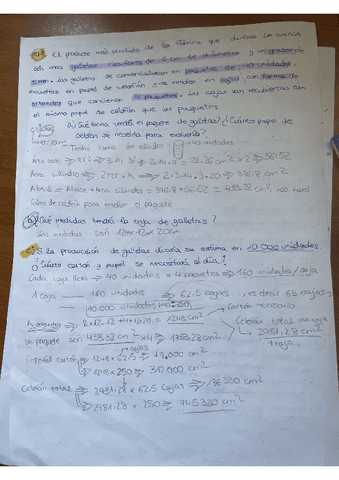 El producto más vendido de la fábrica que dirige la
son unas galletas circulares de 6 cm de diámetro y un grosor de
5mm. Las galletas se comercializan en paquetes de 40 unidades,
envueltas en papel de celofán y se venden en cajas con forma de
ortoedro que contienen 4 paquetes. Las cajas van recubiertas con
el mismo papel de celofán que los paquetes
a) ¿Qué forma tendrá el paquete de galletas? ¿Cuánto papel de
celofán se necesita para envolverlo?
Tendrá forma de cilindro 40 unidades
Área base ⇒ 28,26 cm² x 2 ⇒ 56,52
Área cilindro ⇒ 2πr x h ⇒ 2·3,14·3·20 ⇒ 376,8 cm²
Atotal = Abases + Área cilindro = 376,8 + 56,52 = 433,32 cm², nos hará
falta de celofán para envolver el paquete
b) ¿Qué medidas tendrá la caja de galletas?
Sus medidas son 12cm x 12cm x 20cm
c) Si la producción de galletas diaria se estima en 10.000 unidades
¿Cuánto cartón y papel se necesitará al día?
Cada caja lleva ⇒ 40 unidades x 4 paquetes ⇒ 160 unidades / caja
1 caja — 160 unidades ⇒ 62,5 cajas, es decir 63 cajas
10.000 unidades
Cartón necesario
A ortoedro ⇒ 2x12·12 + 4x12·20 = 1248 cm²
Celofán total una caja
Un paquete son 433,32 cm² x 4 ⇒ 1733,28 cm²
2981,28 cm²
1 caja
Total cartón ⇒ 1248 x 62,5 ⇒ 78.000 cm²
1248 x 250 ⇒ 312.000 cm²
Celofán total ⇒ 2981,28 x 62,5 cajas ⇒ 186330 cm²
⇒ 2981,28 x 250 ⇒ 745320 cm²